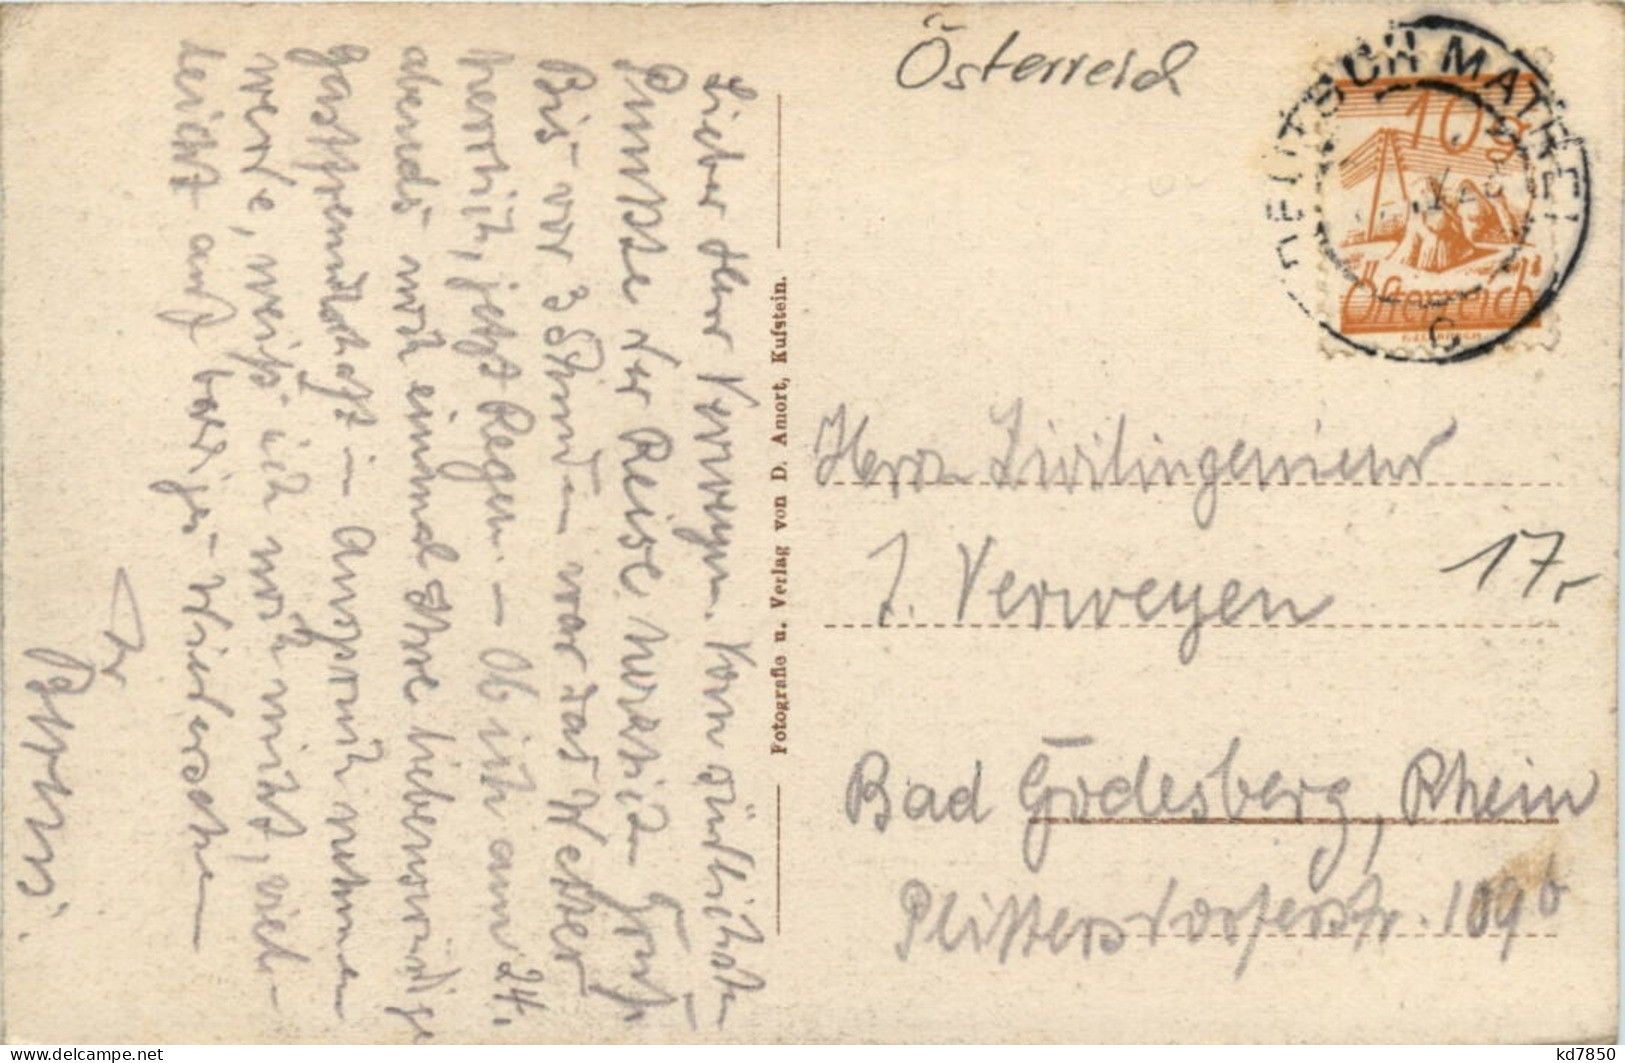 Österreich
DEUTSCH MATREI
10 g
Österreich
C
Lieber Herr Verweyen. Vom südlichsten
Punkte der Reise herzlichen Gruß.
Bis vor 3 Stunden war das Wetter
herrlich, jetzt Regen. – Ob ich am 24.
abends noch einmal Ihre liebenswürdige
Gastfreundschaft in Anspruch nehmen
werde, weiß ich noch nicht, viel-
leicht auf baldiges Wiedersehen
Ihr
Fotografie u. Verlag von D. Amort, Kufstein.
Herrn Zivilingenieur
J. Verweyen
17,-
Bad Godesberg, Rhein
Plittersdorferstr. 109b
kd7850